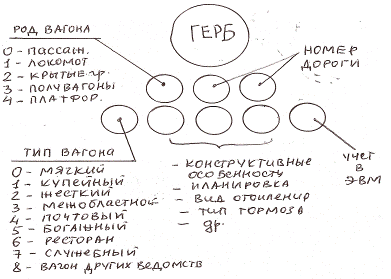 РОД ВАГОНА
0 - ПАССАЖ.
1 - ЛОКОМОТ
2 - КРЫТЫЕ ГР.
3 - ПОЛУВАГОНЫ
4 - ПЛАТФОР.
ГЕРБ
НОМЕР
ДОРОГИ
ТИП ВАГОНА
0 - МЯГКИЙ
1 - КУПЕЙНЫЙ
2 - ЖЕСТКИЙ
3 - МЕЖОБЛАСТНОЙ
4 - ПОЧТОВЫЙ
5 - БОГАЖНЫЙ
6 - РЕСТОРАН
7 - СЛУЖЕБНЫЙ
8 - ВАГОН ДРУГИХ ВЕДОМСТВ
- КОНСТРУКТИВНЫЕ
ОСОБЕННОСТЬ
- ПЛАНИРОВКА
- ВИД ОТОПЛЕНИЯ
- ТИП ТОРМОЗА
- ДР.
УЧЕТ
В
ЭВМ